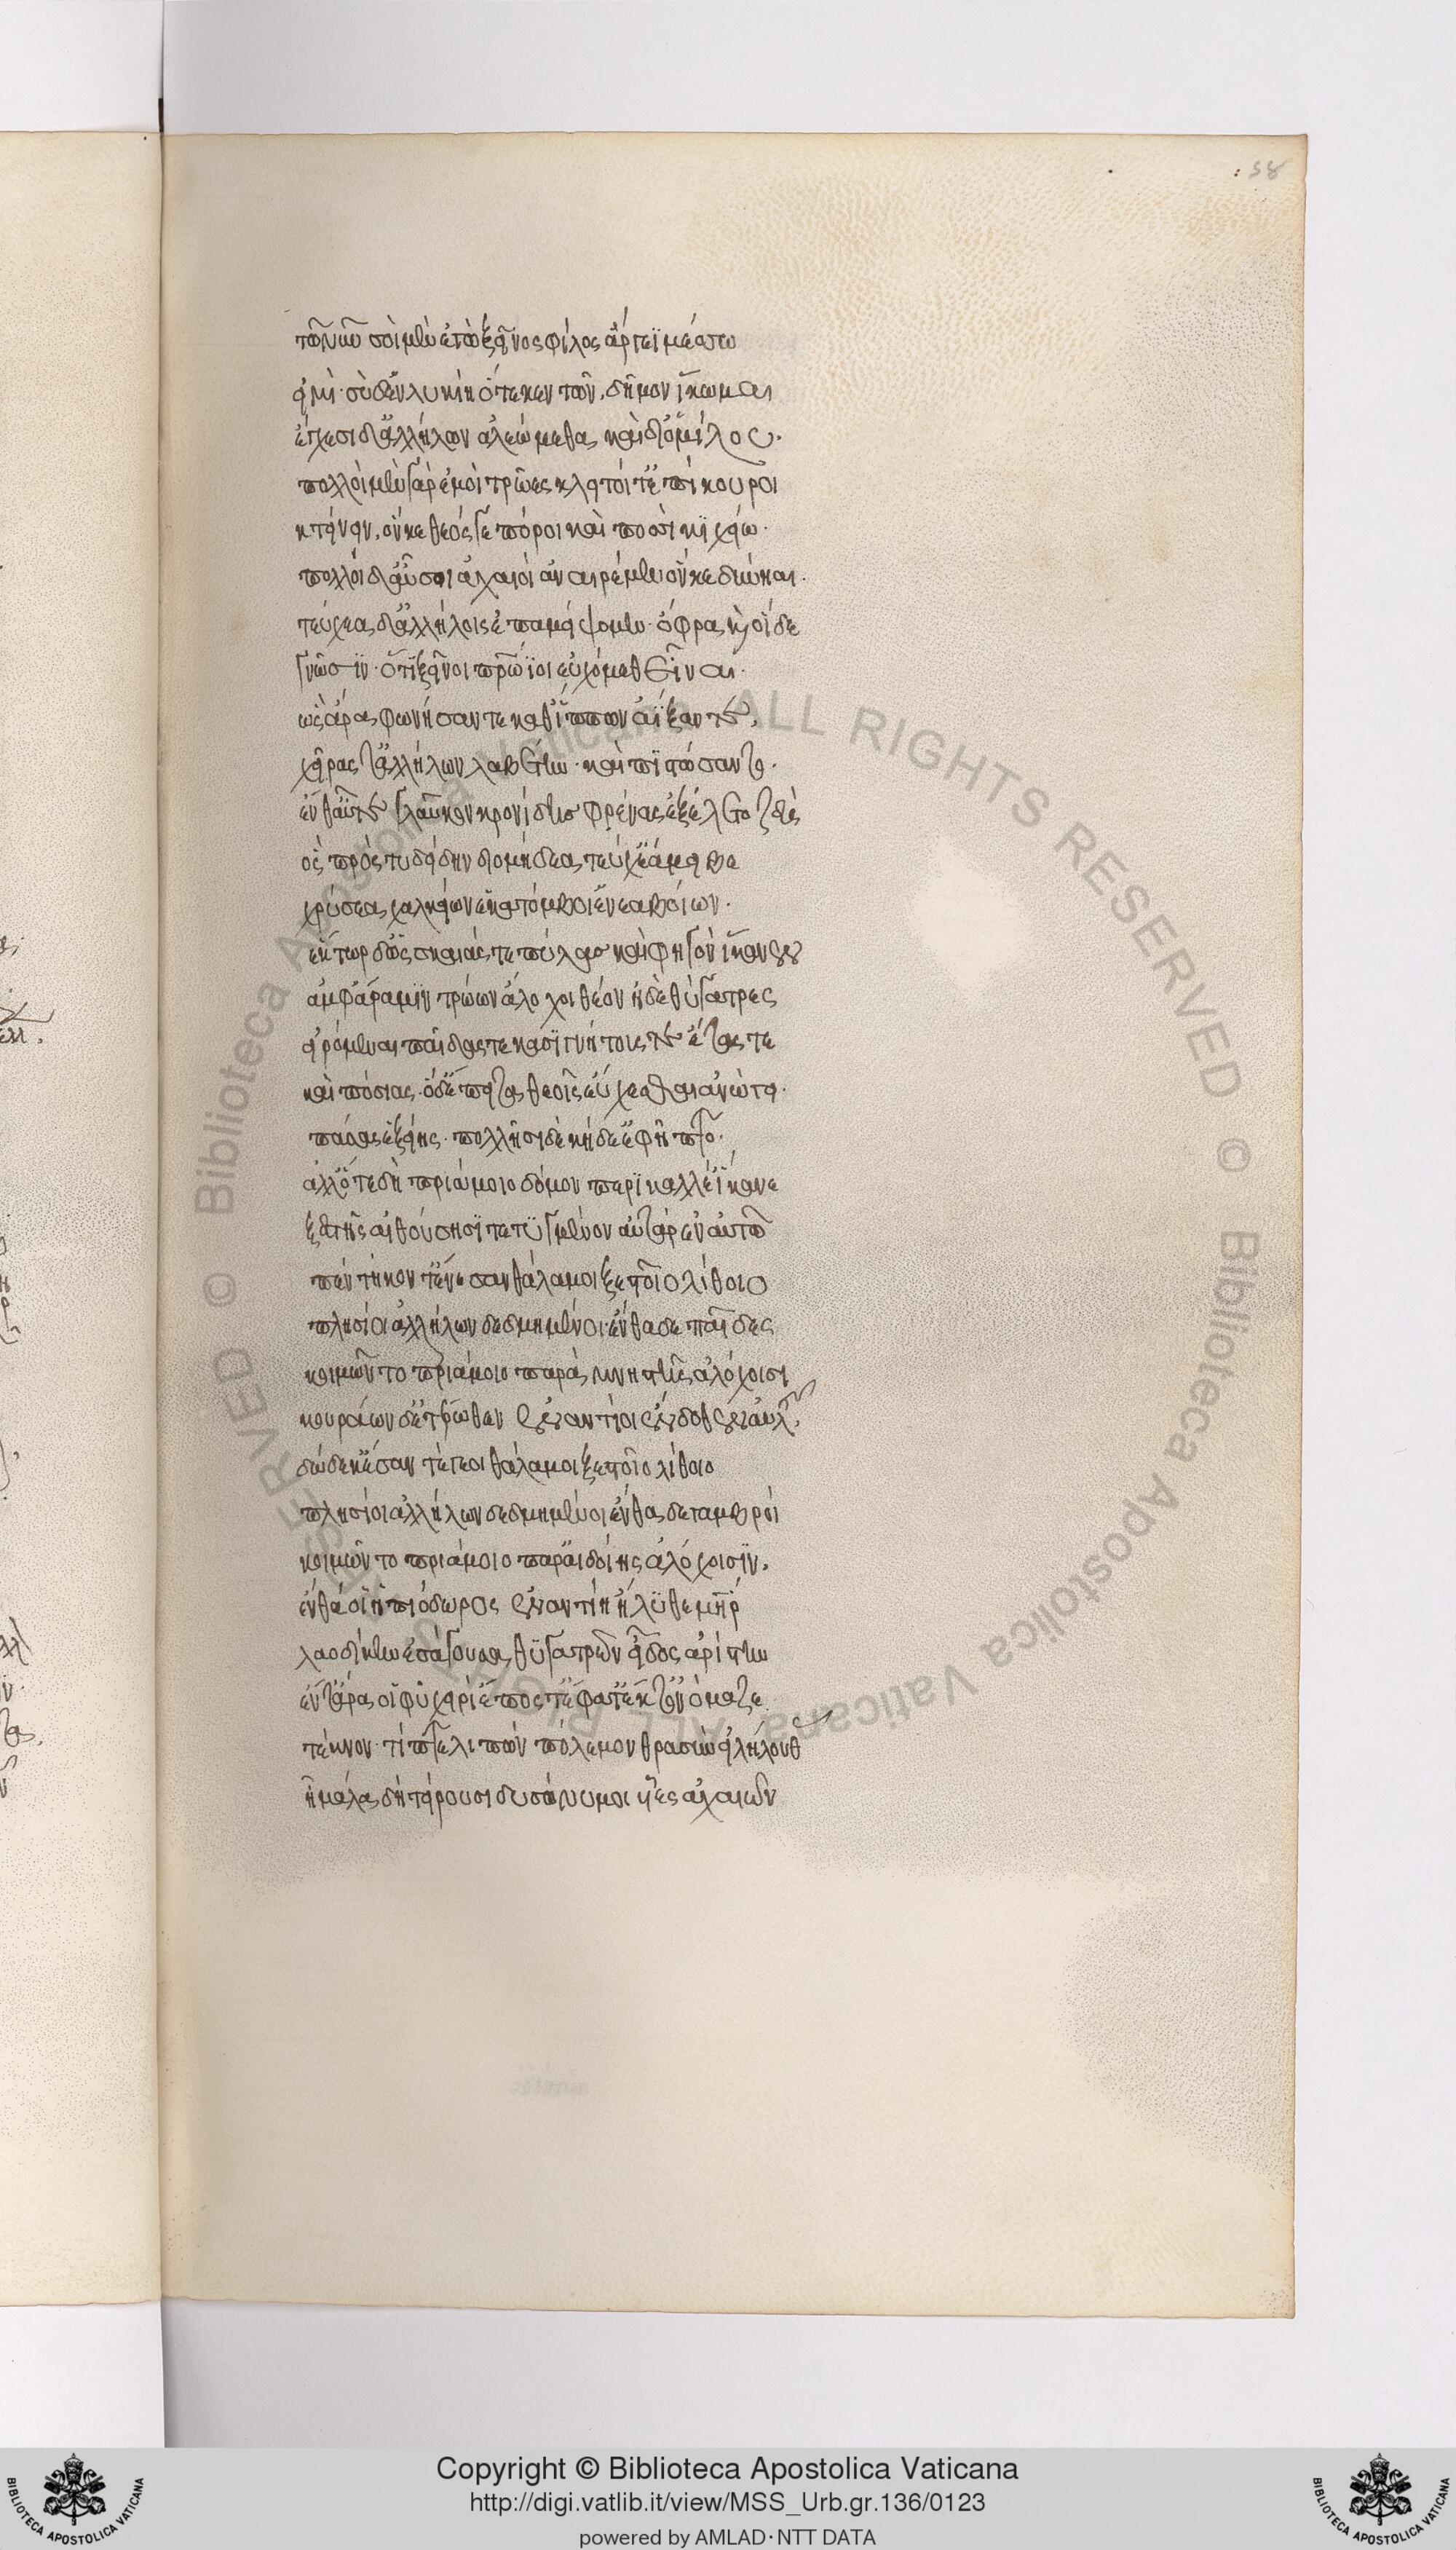 58
τῶ νῦν σοὶ μὲν ἐγὼ ξεῖνος φίλος ἄργεϊ μέσσω
εἰμί· σὺ δ' ἐν λυκίη ὅτε κεν τῶν δῆμον ἵκωμαι
ἔγχεσι δ' ἀλλήλων ἀλεώμεθα καὶ δι' ὁμίλου·
πολλοὶ μὲν γὰρ ἐμοὶ τρῶες κλειτοί τ' ἐπίκουροι
κτείνειν, ὅν κε θεός γε πόροι καὶ ποσὶ κιχείω·
πολλοὶ δ' αὖ σοι ἀχαιοὶ ἀναιρέμεν ὅν κε δύνηαι·
τεύχεα δ' ἀλλήλοις ἐπαμείψομεν· ὄφρα καὶ οἵδε
γνῶσιν· ὅτι ξεῖνοι πατρώϊοι εὐχόμεθ' εἶναι·
ὣς ἄρα φωνήσαντε καθ' ἵππων ἀΐξαντε,
χεῖρας τ' ἀλλήλων λαβέτην· καὶ πιστώσαντο·
ἔνθ' αὖτε γλαῦκον κρονίδης φρένας ἐξέλετο ζεὺς
ὃς πρὸς τυδείδην διομήδεα τεύχε' ἄμειβε
χρύσεα χαλκείων ἑκατόμβοι' ἐννεαβοίων·
ἕκτωρ δ' ὡς σκαιάς τε πύλας καὶ φηγὸν ἵκανεν
ἀμφ' ἄρα μιν τρώων ἄλοχοι θέον ἠδὲ θύγατρες
εἰρόμεναι παῖδάς τε κασιγνήτους τε ἔτας τε
καὶ πόσιας· ὁ δ' ἔπειτα θεοῖς εὔχεσθαι ἀνώγει·
πάσας ἑξείης· πολλῇσι δὲ κήδε' ἐφῆπτο·
ἀλλ' ὅτε δὴ πριάμοιο δόμον περικαλλέ' ἵκανε
ξεστῇς αἰθούσησι τετυγμένον αὐτὰρ ἐν αὐτῶ
πεντήκοντ' ἔνεσαν θάλαμοι ξεστοῖο λίθοιο
πλησίοι ἀλλήλων δεδμημένοι· ἔνθα δὲ παῖδες
κοιμῶντο πριάμοιο παρὰ μνηστῇς ἀλόχοισι
κουράων δ' ἑτέρωθεν ἐναντίοι ἔνδοθεν αὐλῆς,
δώδεκ' ἔσαν τέγεοι θάλαμοι ξεστοῖο λίθοιο
πλησίοι ἀλλήλων δεδμημένοι ἔνθα δὲ γαμβροὶ
κοιμῶντο πριάμοιο παρ' αἰδοίης ἀλόχοισιν,
ἔνθά οἱ ἠπιόδωρος ἐναντίη ἤλυθε μήτηρ
λαοδίκην ἐσάγουσα θυγατρῶν εἶδος ἀρίστην
ἔν τ' ἄρα οἱ φῦ χειρὶ ἔπος τ' ἔφατ' ἔκ τ' ὀνόμαζε
τέκνον· τίπτε λιπὼν πόλεμον θρασὺν εἰλήλουθας
ἦ μάλα δὴ τείρουσι δυσώνυμοι υἷες ἀχαιῶν
Copyright © Biblioteca Apostolica Vaticana
http://digi.vatlib.it/view/MSS_Urb.gr.136/0123
powered by AMLAD·NTT DATA